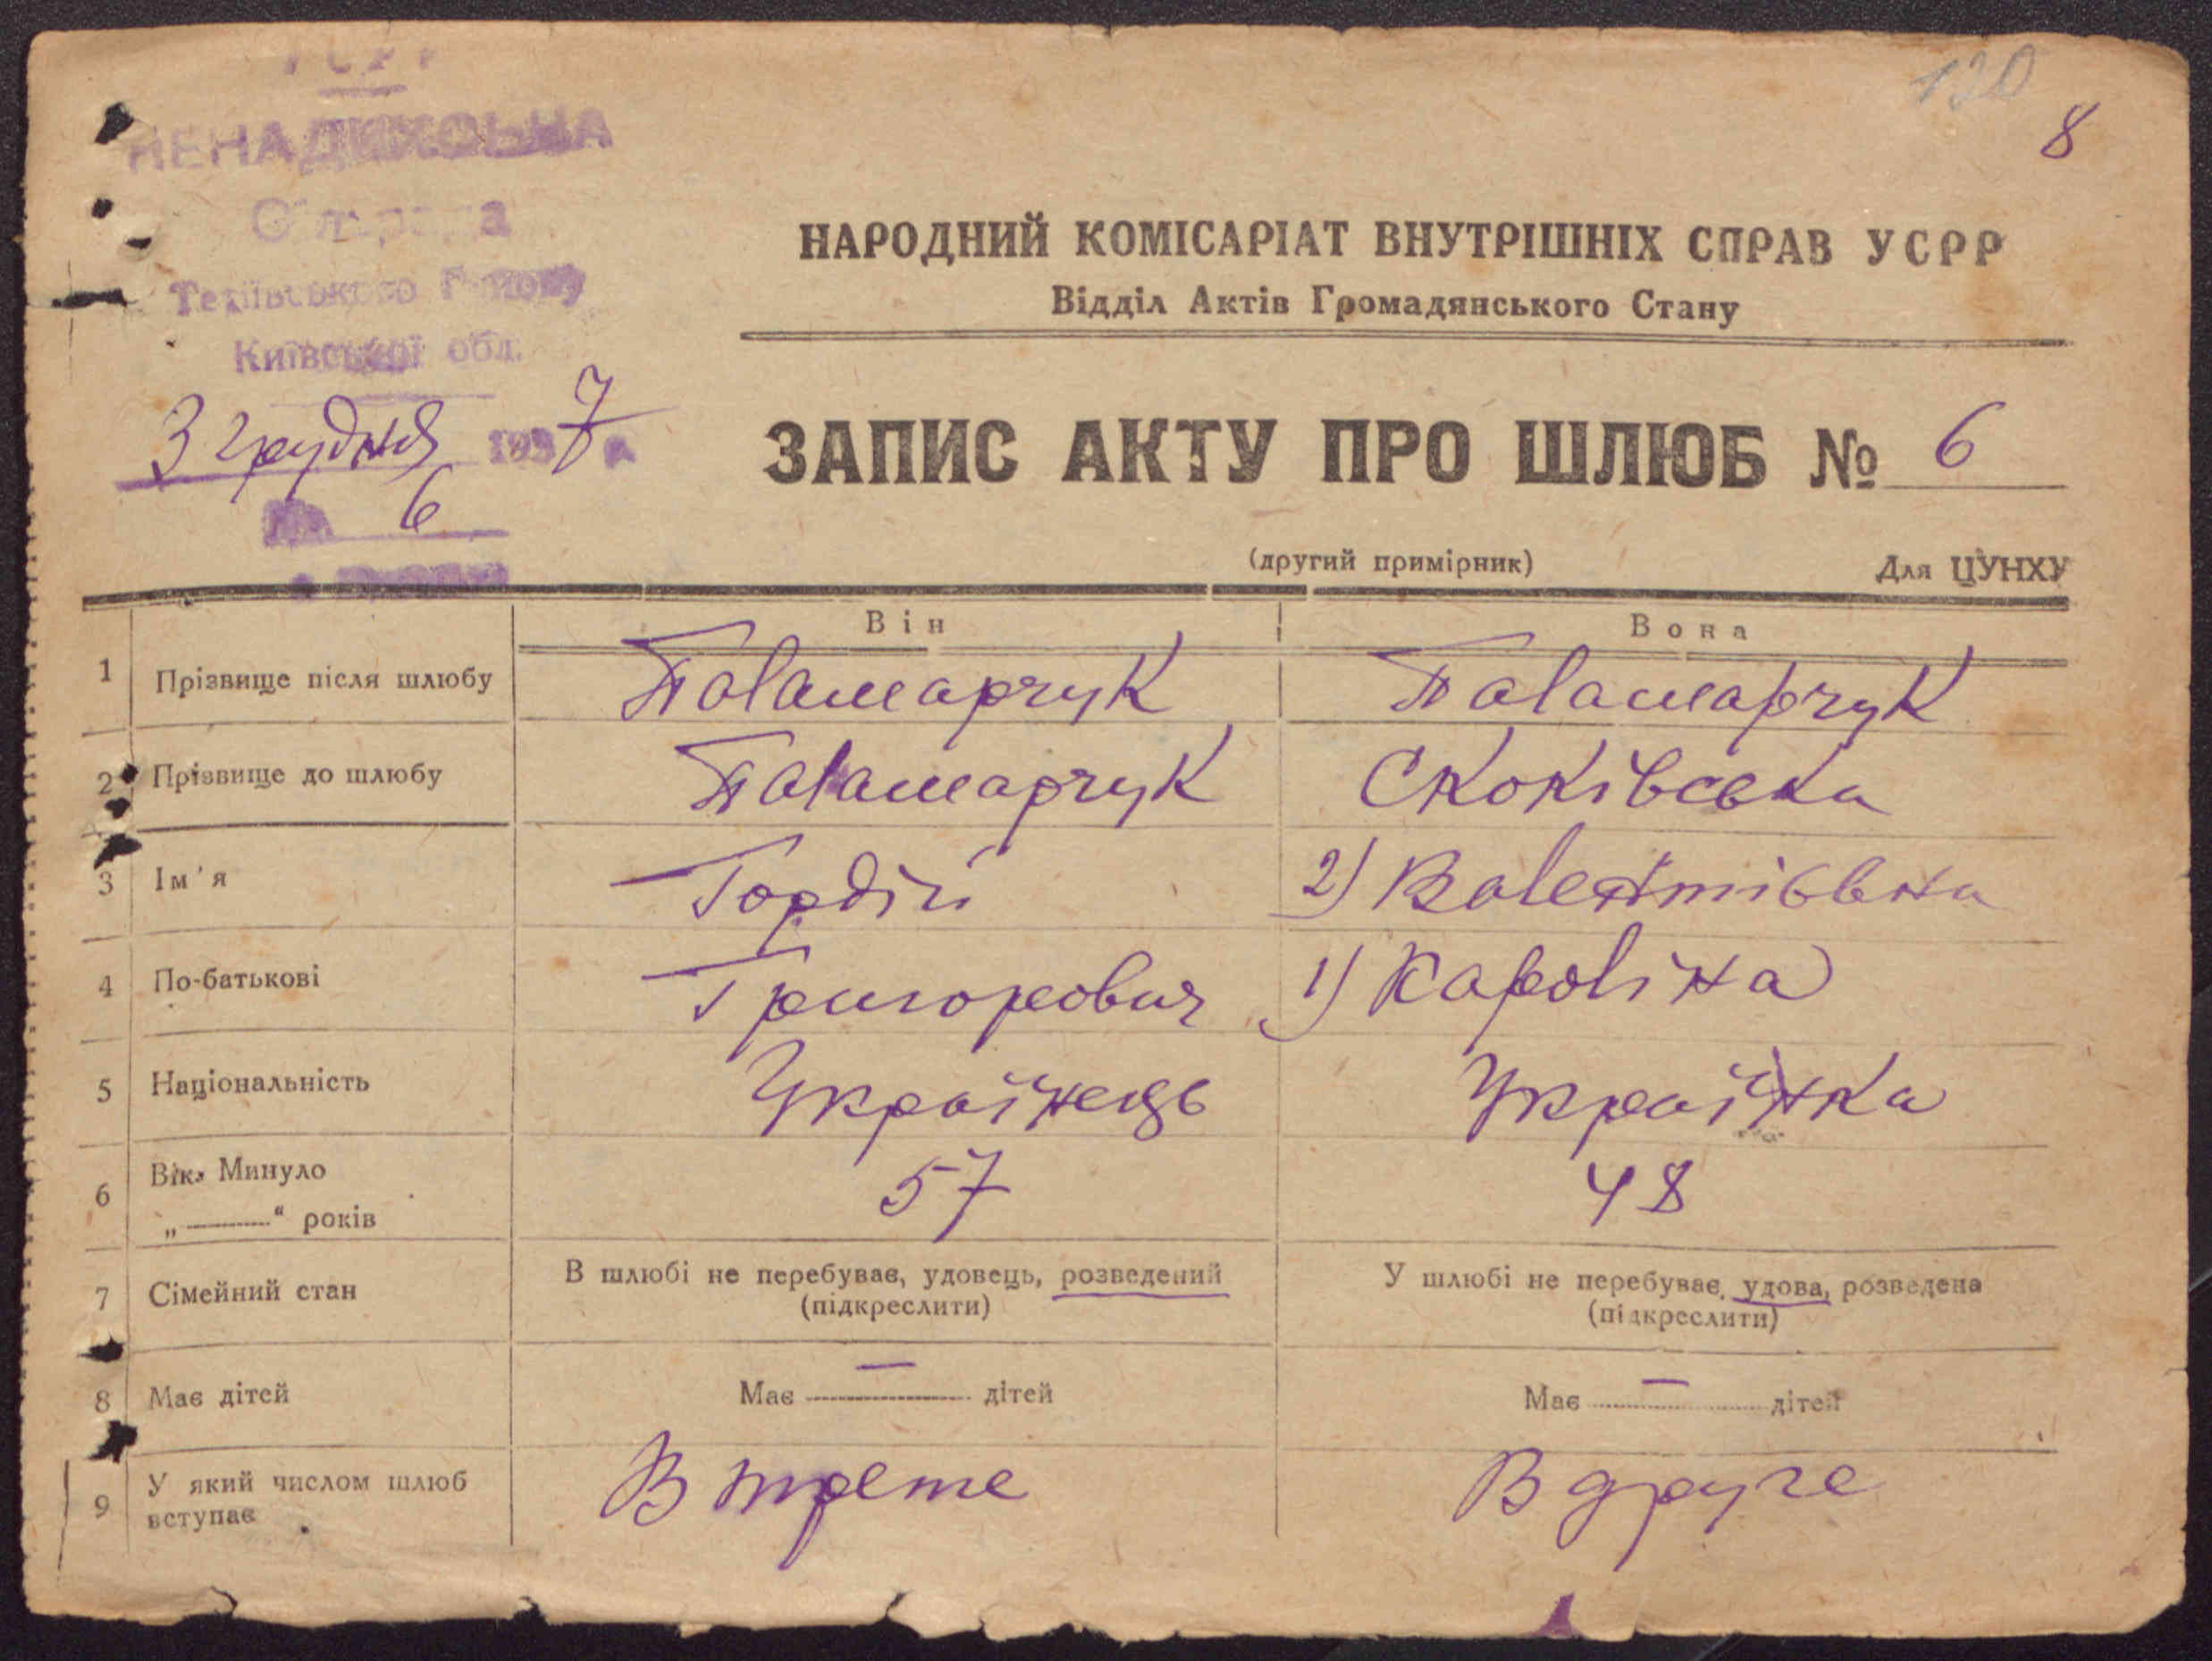 УСРР
НЕНАДИХСЬКА
Сільрада
Тетіївського Району
Київської обл.
3 грудня 1937 р.
№ 6
130
8
НАРОДНИЙ КОМІСАРІАТ ВНУТРІШНІХ СПРАВ УСРР
Відділ Актів Громадянського Стану
ЗАПИС АКТУ ПРО ШЛЮБ № 6
(другий примірник) Для ЦУНХУ
Він Вона
1 Прізвище після шлюбу Паламарчук Паламарчук
2 Прізвище до шлюбу Паламарчук Скоківська
3 Ім'я Гордій 2) Валентиівна
4 По-батькові Григорович 1) Кароліна
5 Національність Українець Українка
6 Вік. Минуло
„ “ років 57 48
7 Сімейний стан В шлюбі не перебуває, удовець, розведений У шлюбі не перебуває, удова, розведена
(підкреслити) (підкреслити)
8 Має дітей Має — дітей Має — дітей
9 У який числом шлюб
вступає В трете В друге